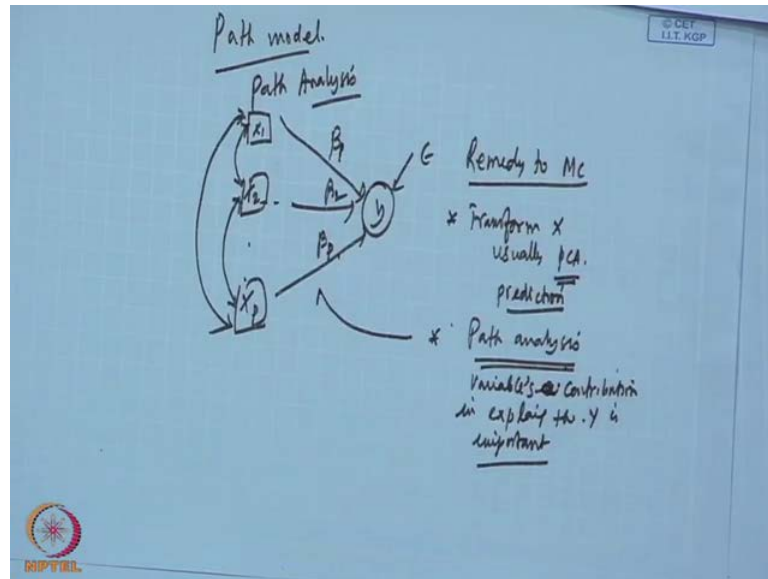 Path model.
© CET
I.I.T. KGP
Path Analysis
x1
β1
ε
x2
β2
y
.
βp
xp
Remedy to MC
* Transform X
usually PCA.
prediction
* Path analysis
Variable's contribution
in explaig the Y is
important
NPTEL